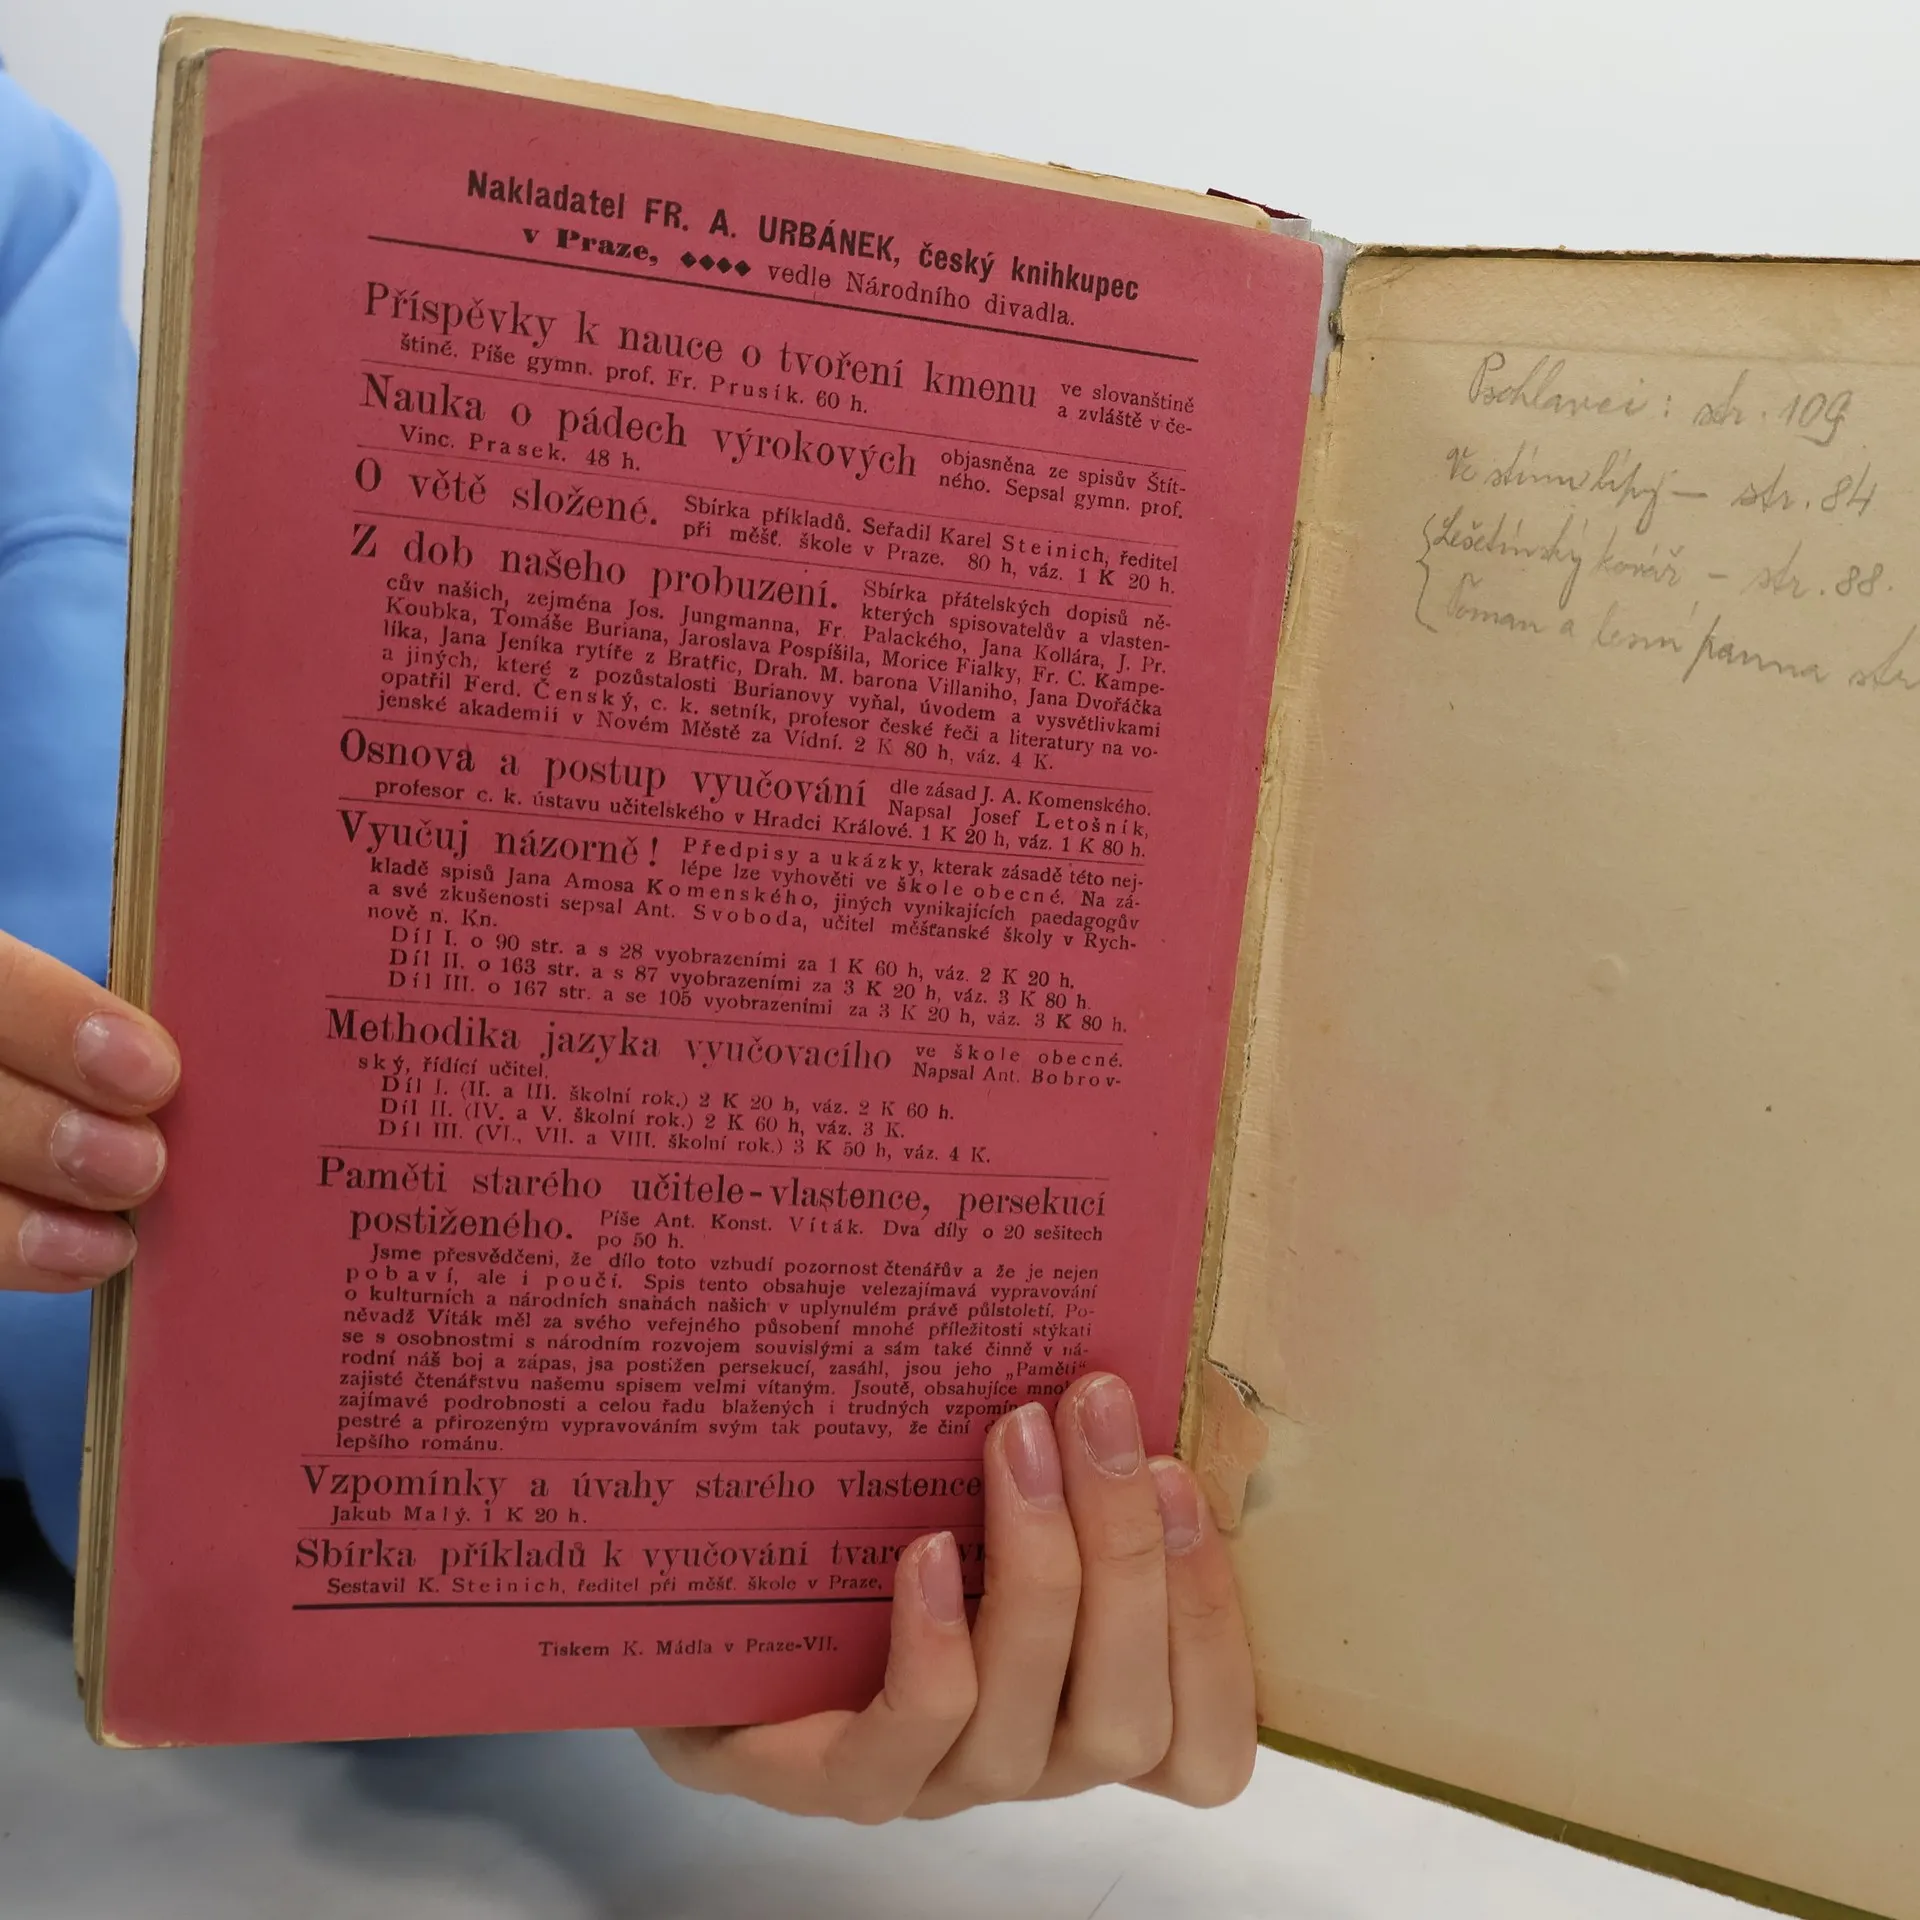 Nakladatel FR. A. URBÁNEK, český knihkupec
v Praze, ◆◆◆◆ vedle Národního divadla.
Příspěvky k nauce o tvoření kmenu ve slovanštině
a zvláště v če-
štině. Píše gymn. prof. Fr. Prusík. 60 h.
Nauka o pádech výrokových objasněna ze spisův Štít-
ného. Sepsal gymn. prof.
Vinc. Prasek. 48 h.
O větě složené. Sbírka příkladů. Seřadil Karel Steinich, ředitel
při měšť. škole v Praze. 80 h, váz. 1 K 20 h.
Z dob našeho probuzení. Sbírka přátelských dopisů ně-
kterých spisovatelův a vlasten-
cův našich, zejména Jos. Jungmanna, Fr. Palackého, Jana Kollára, J. Pr.
Koubka, Tomáše Buriana, Jaroslava Pospíšila, Morice Fialky, Fr. C. Kampe-
líka, Jana Jeníka rytíře z Bratřic, Drah. M. barona Villaniho, Jana Dvořáčka
a jiných, které z pozůstalosti Burianovy vyňal, úvodem a vysvětlivkami
opatřil Ferd. Čenský, c. k. setník, profesor české řeči a literatury na vo-
jenské akademii v Novém Městě za Vídní. 2 K 80 h, váz. 4 K.
Osnova a postup vyučování dle zásad J. A. Komenského.
Napsal Josef Letošník,
profesor c. k. ústavu učitelského v Hradci Králové. 1 K 20 h, váz. 1 K 80 h.
Vyučuj názorně! Předpisy a ukázky, kterak zásadě této nej-
lépe lze vyhověti ve škole obecné. Na zá-
kladě spisů Jana Amosa Komenského, jiných vynikajících paedagogův
a své zkušenosti sepsal Ant. Svoboda, učitel měšťanské školy v Rych-
nově n. Kn.
Díl I. o 90 str. a s 28 vyobrazeními za 1 K 60 h, váz. 2 K 20 h.
Díl II. o 163 str. a s 87 vyobrazeními za 3 K 20 h, váz. 3 K 80 h.
Díl III. o 167 str. a se 105 vyobrazeními za 3 K 20 h, váz. 3 K 80 h.
Methodika jazyka vyučovacího ve škole obecné.
Napsal Ant. Bobrov-
ský, řídící učitel.
Díl I. (II. a III. školní rok.) 2 K 20 h, váz. 2 K 60 h.
Díl II. (IV. a V. školní rok.) 2 K 60 h, váz. 3 K.
Díl III. (VI., VII. a VIII. školní rok.) 3 K 50 h, váz. 4 K.
Paměti starého učitele-vlastence, persekucí
postiženého. Píše Ant. Konst. Víták. Dva díly o 20 sešitech
po 50 h.
Jsme přesvědčeni, že dílo toto vzbudí pozornost čtenářův a že je nejen
pobaví, ale i poučí. Spis tento obsahuje velezajímavá vypravování
o kulturních a národních snahách našich v uplynulém právě půlstoletí. Po-
něvadž Víták měl za svého veřejného působení mnohé příležitosti stýkati
se s osobnostmi s národním rozvojem souvislými a sám také činně v ná-
rodní náš boj a zápas, jsa postižen persekucí, zasáhl, jsou jeho „Paměti“
zajisté čtenářstvu našemu spisem velmi vítaným. Jsoutě, obsahujíce
zajímavé podrobnosti a celou řadu blažených i trudných
pestré a přirozeným vypravováním svým tak poutavy, že činí
lepšího románu.
Vzpomínky a úvahy starého vlastence
Jakub Malý. 1 K 20 h.
Sbírka příkladů k vyučování
Sestavil K. Steinich, ředitel při měšť. škole v Praze,
Tiskem K. Mádla v Praze-VII.
Psohlavci: str. 109
Ve stínu lípy — str. 84
Lešetínský kovář — str. 88.
Toman a lesní panna str